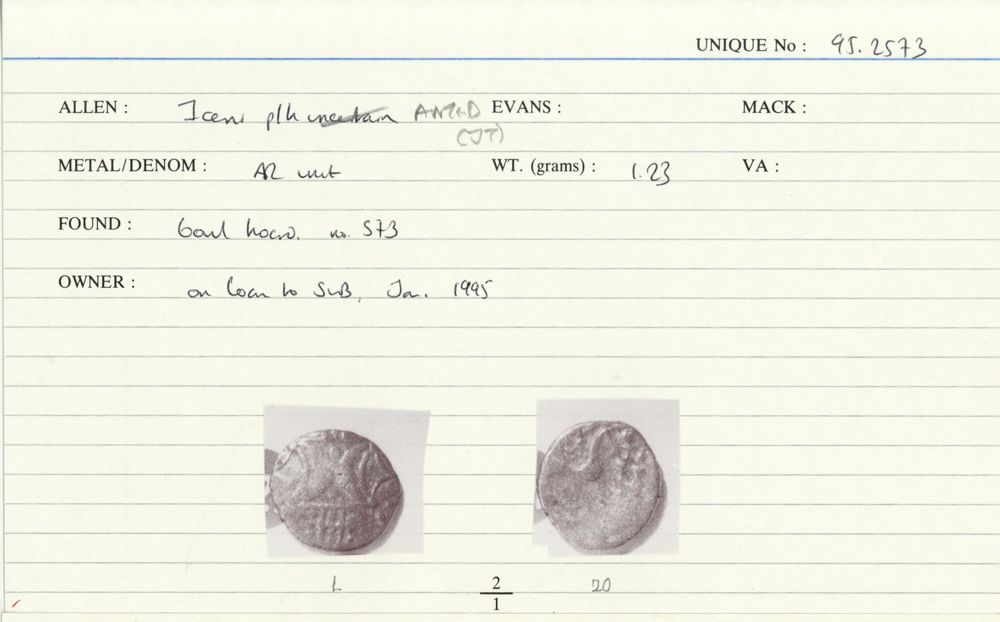 UNIQUE No : 95.2573
ALLEN : Iceni p/h uncertain ANTED EVANS : MACK :
(JT)
METAL/DENOM : AR unit WT. (grams) : 1.23 VA :
FOUND : hoard. no. 573
OWNER : on loan to SUB, Jan. 1995
L 2 20
1